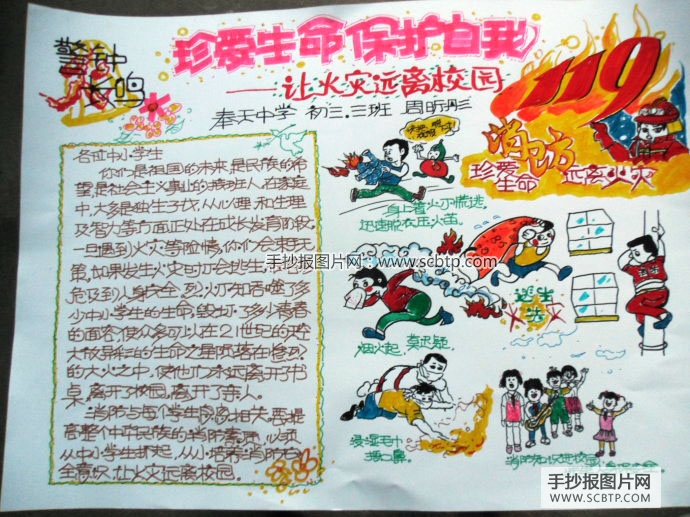 警钟
长鸣
珍爱生命 保护自我
——让火灾远离校园
奉天中学 初三.三班 周昕彤
119
消防
珍爱
生命
远离火灾
各位中小学生
你们是祖国的未来,是民族的希
望,是社会主义事业的接班人,在家庭
中,大多是独生子女,从心理和生理
及智力等方面正处在成长发育阶段,
一旦遇到火灾等险情,你们会束手无
第,如果发生火灾时不会逃生,
危及到人身安全,烈火不知吞噬了多
少中小学生的生命,毁坏了多少青春
的面容,使众多可以在21世纪的天空
大放异彩的生命之星陨落在
的大火之中,使他们永远离开了书
桌,离开了校园,离开了亲人。
消防与每个学生息息相关,要提
高整个中华民族的消防素质,必须
从中小学生抓起,从小培养消防安
全意识,让火灾远离校园。
身上着火不慌逃,
迅速脱衣压火苗。
烟火起,莫迟疑。
逃生
浸湿毛巾
捂口鼻。
手抄报图片网:www.scbtp.com
手抄报图片网
WWW.SCBTP.COM